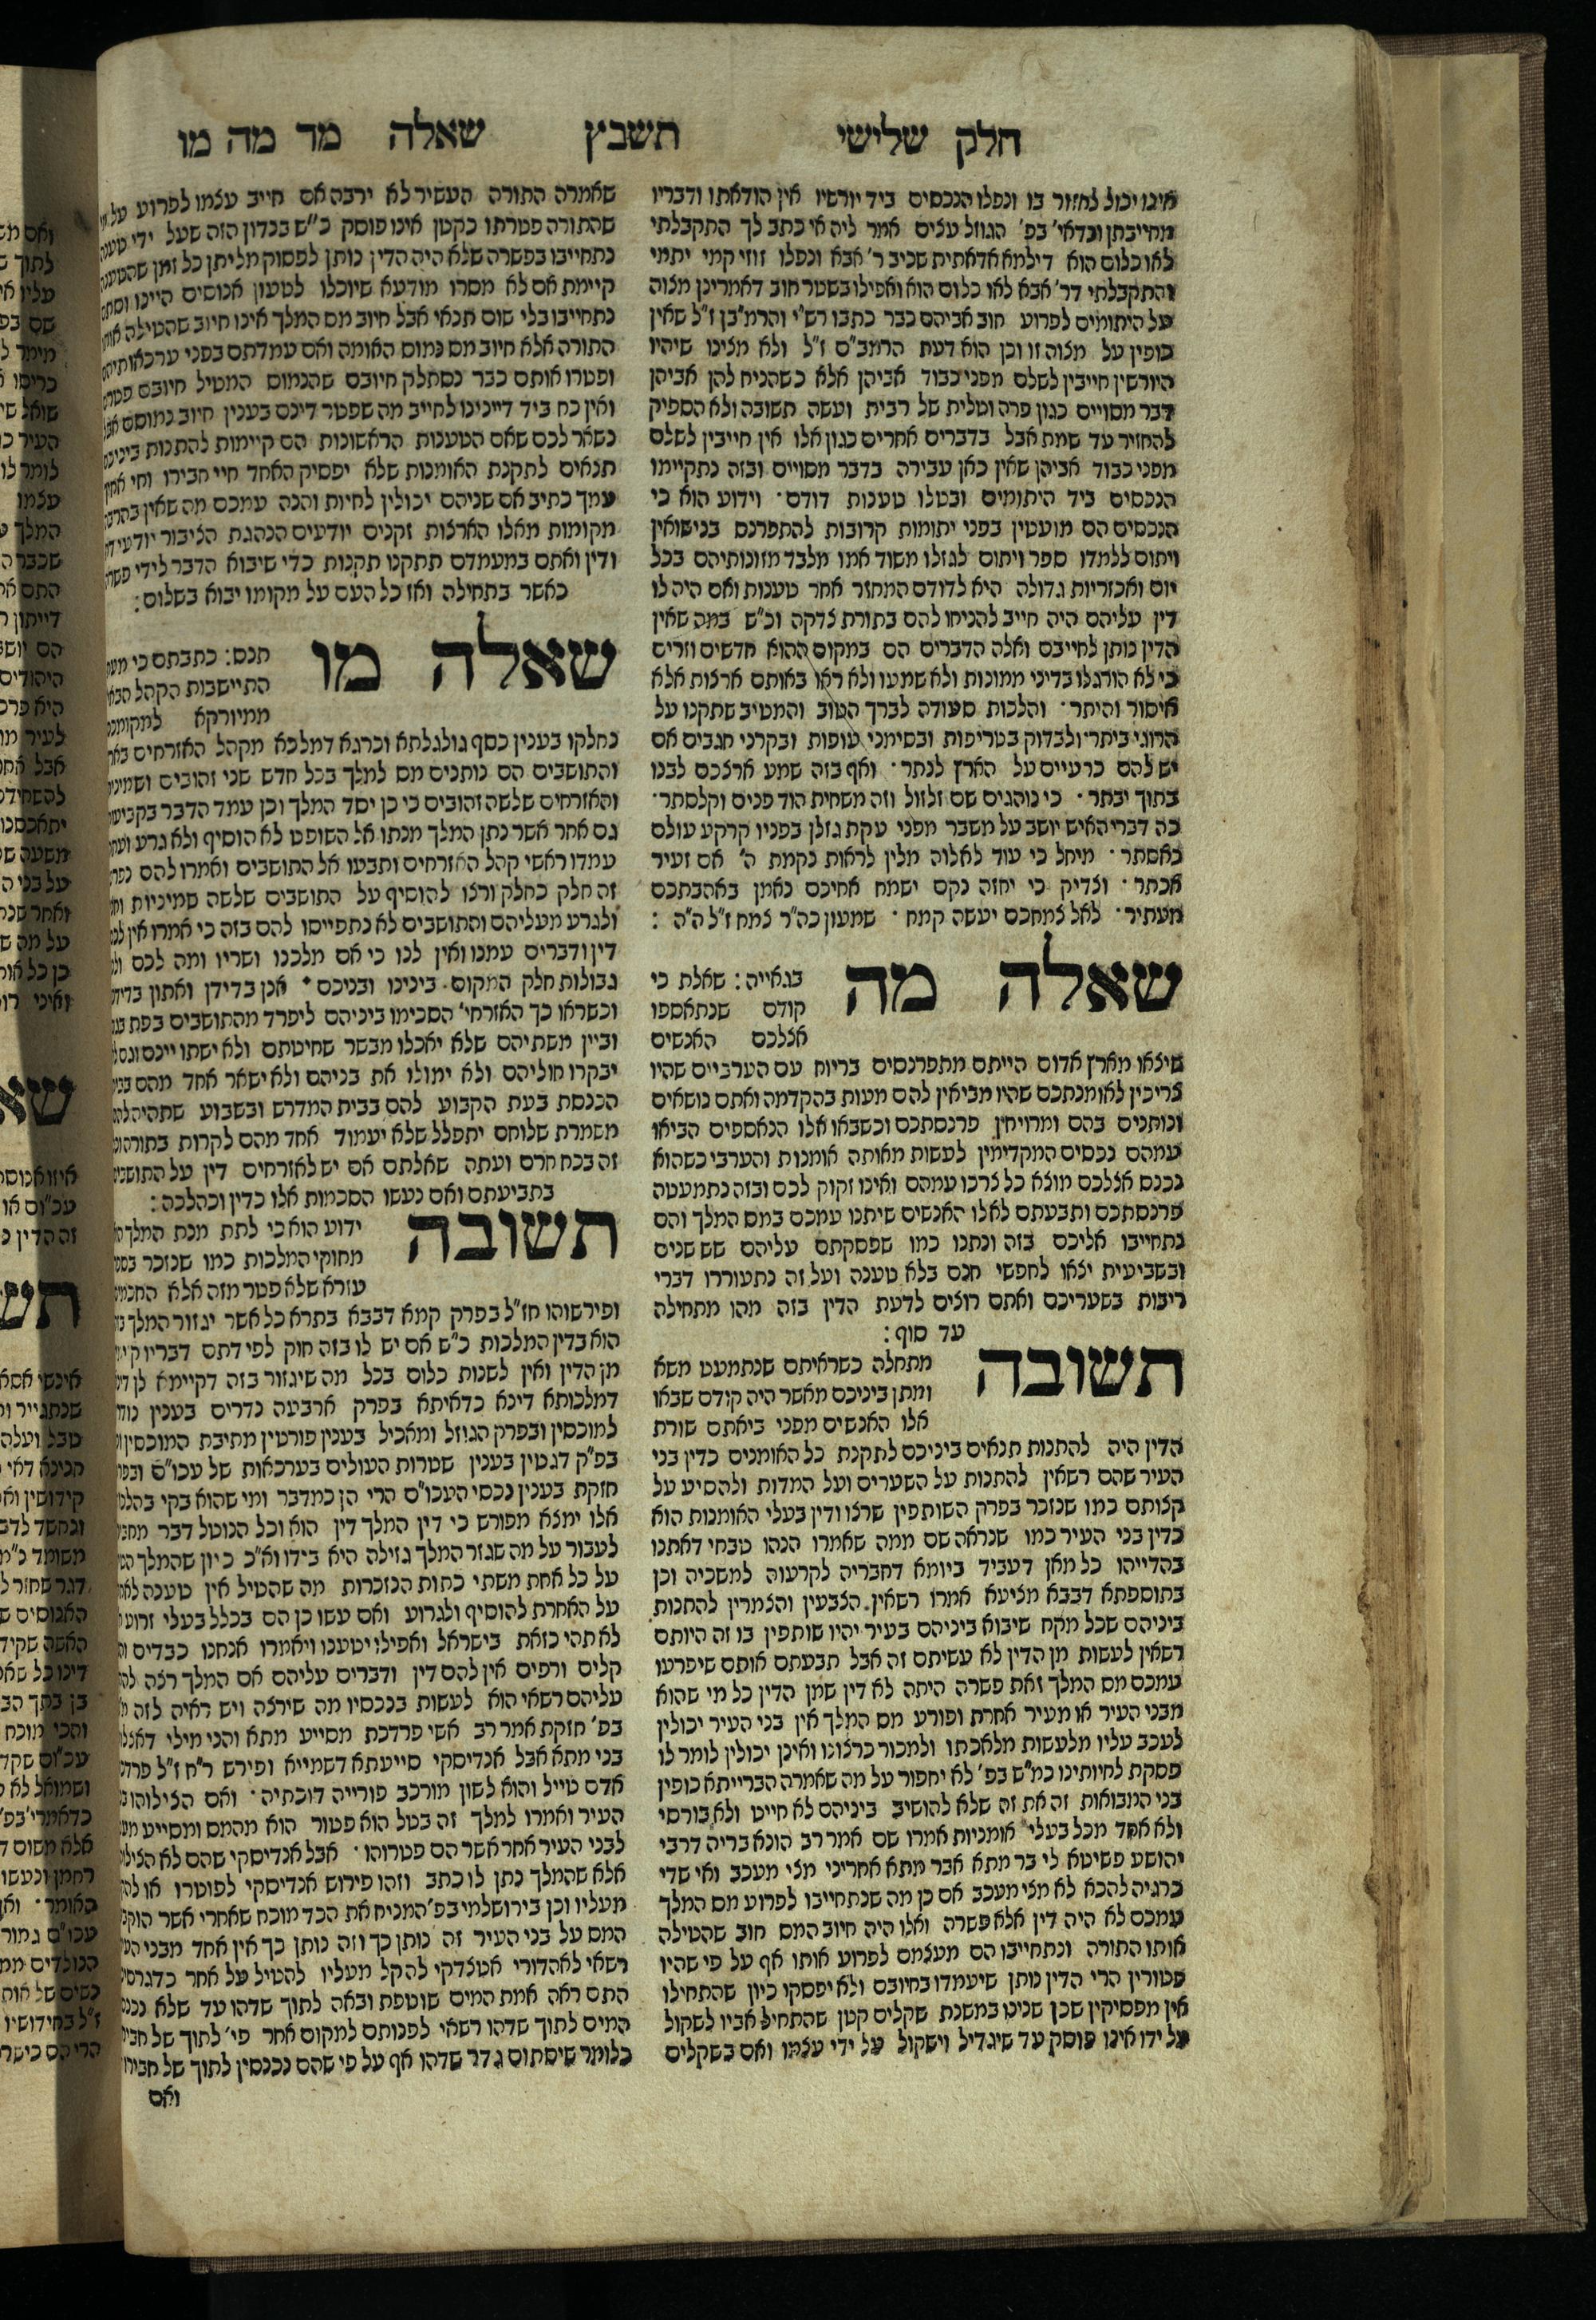 חלק שלישי תשבץ שאלה מד מה מו
אינו יכול לחזור בו ונפלו הנכסים ביד יורשיו אין הודאתו ודבריו
מחייבתן ובדאי' בפ' הגוזל עצים אמר ליה אי כתב לך התקבלתי
לאו כלום הוא דילמא אדאתית שכיב ר' אבא ונפלו זוזי קמי יתמי
והתקבלתי דר' אבא לאו כלום הוא ואפילו בשטר חוב דאמרינן מצוה
על היתומים לפרוע חוב אביהם כבר כתבו רש"י והרמ"בן ז"ל שאין
כופין על מצוה זו וכן הוא דעת הרמב"ם ז"ל ולא מצינו שיהיו
היורשין חייבין לשלם מפני כבוד אביהן אלא כשהניח להן אביהן
דבר מסויים כגון פרה וטלית של רבית ועשה תשובה ולא הספיק
להחזיר עד שמת אבל בדברים אחרים כגון אלו אין חייבין לשלם
מפני כבוד אביהן שאין כאן עבירה בדבר מסויים ובזה נתקיימו
הנכסים ביד היתומים ובטלו טענות דודם· וידוע הוא כי
הנכסים הם מועטין בפני יתומות קרובות להתפרנס בנישואין
ויתום ללמדו ספר ויתום לגזלו משוד אמו מלבד מזונותיהם בכל
יום ואכזריות גדולה היא לדודם המחזר אחר טענות ואם היה לו
דין עליהם היה חייב להניחו להם בתורת צדקה וכ"ש במה שאין
הדין נותן לחייבם ואלה הדברים הם במקום ההוא חדשים וזרים
כי לא הורגלו בדיני ממונות ולא שמעו ולא ראו באותם ארצות אלא
איסור והיתר· והלכות סעודה לברך הטוב והמטיב שתקנו על
הרוגי ביתר· ולבדוק בטריפות ובסימני עופות ובקרני חגבים אם
יש להם כרעיים על הארץ לנתר· ואף בזה שמע ארצכם לבנו
בתוך יבתר· כי נוהגים שם זלזול וזה משחית הוד פנים וקלסתר·
כה דברי האיש יושב על משבר מפני עקת גזלן בפניו קרקע עולם
כאסתר· מיחל כי עוד לאלוה מלין לראות נקמת ה' אם זעיר
אכתר· וצדיק כי יחזה נקם ישמח אחיכם נאמן באהבתכם
מעתיר· לאל צמחכם יעשה קמח· שמעון כה"ר צמח ז"ל ה"ה :
שאלה מה בגאייה: שאלת כי
קודם שנתאספו
אצלכם האנשים
שיצאו מארץ אדום הייתם מתפרנסים בריוח עם הערביים שהיו
צריכין לאומנתכם שהיו מביאין להם מעות בהקדמה ואתם נושאים
ונותנים בהם ומרויחין פרנסתכם וכשבאו אלו הנאספים הביאו
עמהם נכסים המקדימין לעשות מאותה אומנות והערבי כשהוא
נכנס אצלכם מוצא כל צרכו עמהם ואינו זקוק לכם ובזה נתמעטה
פרנסתכם ותבעתם לאלו האנשים שיתנו עמכם במס המלך והם
נתחייבו אליכם בזה ונתנו כמו שפסקתם עליהם שש שנים
ובשביעית יצאו לחפשי חנם בלא טענה ועל זה נתעוררו דברי
ריבות בשעריכם ואתם רוצים לדעת הדין בזה מהו מתחילה
עד סוף:
תשובה מתחלה כשראיתם שנתמעט משא
ומתן ביניכם מאשר היה קודם שבאו
אלו האנשים מפני ביאתם שורת
הדין היה להתנות תנאים ביניכם לתקנת כל האומנים כדין בני
העיר שהם רשאין להתנות על השערים ועל המדות ולהסיע על
קצותם כמו שנזכר בפרק השותפין שרצו ודין בעלי האומנות הוא
כדין בני העיר כמו שנראה שם ממה שאמרו הנהו טבחי דאתנו
בהדייהו כל מאן דעביד ביומא דחבריה לקרעוה למשכיה וכן
בתוספתא דבבא מציעא אמרו רשאין הצבעין והצמרין להתנות
ביניהם שכל מקח שיבוא ביניהם בעיר יהיו שותפין בו זה היותם
רשאין לעשות מן הדין לא עשיתם זה אבל תבעתם אותם שיפרעו
עמכם מס המלך זאת פשרה היתה לא דין שמן הדין כל מי שהוא
מבני העיר או מעיר אחרת ופורע מס המלך אין בני העיר יכולין
לעכב עליו מלעשות מלאכתו ולמכור כרצונו ואינן יכולין לומר לו
פסקת לחיותינו כמ"ש בפ' לא יחפור על מה שאמרה הברייתא כופין
בני המבואות זה את זה שלא להושיב ביניהם לא חייט ולא בורסי
ולא אחד מכל בעלי אומניות אמרו שם אמר רב הונא בריה דרבי
יהושע פשיטא לי בר מתא אבר מתא אחריני מצי מעכב ואי שדי
כרגיה להכא לא מצי מעכב אם כן מה שנתחייבו לפרוע מס המלך
עמכם לא היה דין אלא פשרה ואלו היה חיוב המס חוב שהטילה
אותו התורה ונתחייבו הם מעצמם לפרוע אותו אף על פי שהיו
פטורין הרי הדין נותן שיעמדו בחיובם ולא יפסקו כיון שהתחילו
אין מפסיקין שכן שנינו במשנת שקלים קטן שהתחיל אביו לשקול
על ידו אינו פוסק עד שיגדיל וישקול על ידי עצמו ואם בשקלים
שאמרה התורה העשיר לא ירבה אם חייב עצמו לפרוע על
שהתורה פטרתו כקטן אינו פוסק כ"ש בנדון הזה שעל ידי טענה
נתחייבו בפשרה שלא היה הדין נותן לפסוק מליתן כל זמן שהטענה
קיימת אם לא מסרו מודעא שיוכלו לטעון אנוסים היינו וסתם
נתחייבו בלי שום תנאי אבל חיוב מס המלך אינו חיוב שהטילה אותו
התורה אלא חיוב מס נמוס האומה ואם עמדתם בפני ערכאותיהם
ופטרו אותם כבר נסתלק חיובם שהנמוס המטיל חיובם פטרם
ואין כח ביד דיינינו לחייב מה שפטר דינם בענין חיוב נמוסם אבל
נשאר לכם שאם הטענות הראשונות הם קיימות להתנות ביניכם
תנאים לתקנת האומנות שלא יפסיק האחד חיי חבירו וחי אחיך
עמך כתיב אם שניהם יכולין לחיות והנה עמכם מה שאין בהרבה
מקומות מאלו הארצות זקנים יודעים הנהגת הציבור יודעי דת
ודין ואתם במעמדם תתקנו תקנות כדי שיבוא הדבר לידי פשרה
כאשר בתחילה ואז כל העם על מקומו יבוא בשלום:
שאלה מו תנס: כתבתם כי מעת
התיישבות הקהל הבאים
ממיורקא למקומכם
נחלקו בענין כסף גולגלתא וכרגא דמלכא מקהל האזרחים באר
והתושבים הם נותנים מס למלך בכל חדש שני זהובים ושמינית
והאזרחים שלשה זהובים כי כן יסד המלך וכן עמד הדבר בקביעות
גם אחר אשר נתן המלך מנתו אל השופט לא הוסיף ולא גרע ועתה
עמדו ראשי קהל האזרחים ותבעו אל התושבים ואמרו להם
זה חלק כחלק ורצו להוסיף על התושבים שלשה שמיניות
ולגרע מעליהם והתושבים לא נתפייסו להם בזה כי אמרו אין לכם
דין ודברים עמנו ואין לנו כי אם מלכנו ושריו ומה לכם
גבולות חלק המקום· בינינו וביניכם· אנן בדידן ואתון בדידכו
וכשראו כך האזרחי' הסכימו ביניהם ליפרד מהתושבים בפת בגם
וביין משתיהם שלא יאכלו מבשר שחיטתם ולא ישתו יינם
יבקרו חוליהם ולא ימולו את בניהם ולא ישאר אחד מהם בבית
הכנסת בעת הקבוע להם בבית המדרש ובשבוע שתהיה להם
משמרת שלוחם יתפלל שלא יעמוד אחד מהם לקרות בתורה
זה בכח חרם ועתה שאלתם אם יש לאזרחים דין על התושבים
בתביעתם ואם נעשו הסכמות אלו כדין וכהלכה:
תשובה ידוע הוא כי לתת מנת המלך
מחוקי המלכות כמו שנזכר בספר
עזרא שלא פטר מזה אלא החכמים
ופירשוהו חז"ל בפרק קמא דבבא בתרא כל אשר יגזור המלך
הוא בדין המלכות כ"ש אם יש לו בזה חוק לפי דתם דבריו קיימין
מן הדין ואין לשנות כלום בכל מה שיגזור בזה דקיימא לן דינא
דמלכותא דינא כדאיתא בפרק ארבעה נדרים בענין נודרין
למוכסין ובפרק הגוזל ומאכיל בענין פורטין מתיבת המוכסין
בפ"ק דגטין בענין שטרות העולים בערכאות של עכו"ם ובפרק
חזקת בענין נכסי העכו"ם הרי הן כמדבר ומי שהוא בקי בהלכות
אלו ימצא מפורש כי דין המלך דין הוא וכל הנוטל דבר מחבירו
לעבור על מה שגזר המלך גזילה היא בידו וא"כ כיון שהמלך הטיל
על כל אחת משתי כתות הנזכרות מה שהטיל אין טענה לאחת
על האחרת להוסיף ולגרוע ואם עשו כן הם בכלל בעלי זרוע
לא תהי כזאת בישראל ואפילו יטענו ויאמרו אנחנו כבדים והם
קלים ורפים אין להם דין ודברים עליהם אם המלך רצה להקל
עליהם רשאי הוא לעשות בנכסיו מה שירצה ויש ראיה לזה
בפ' חזקת אמר רב אשי פרדכת מסייע מתא והני מילי דאצלוה
בני מתא אבל אנדיסקי סייעתא דשמייא ופירש ר"ח ז"ל פרדכת
אדם טייל והוא לשון מורכב פורייה דוכתיה· ואם הצילוהו בני
העיר ואמרו למלך זה בטל הוא פטור הוא מהמס ומסייע
לבני העיר אחר אשר הם פטרוהו· אבל אנדיסקי שהם לא הצילוהו
אלא שהמלך נתן לו כתב וזהו פירוש אנדיסקי לפוטרו או להקל
מעליו וכן בירושלמי בפ' המניח את הכד מוכח שאחרי אשר הוקבע
המס על בני העיר זה נותן כך וזה נותן כך אין אחד מבני העיר
רשאי לאהדורי אטצדקי להקל מעליו להטיל על אחר כדגרסינן
התם ראה אמת המים שוטפת ובאה לתוך שדהו עד שלא נכנסו
המים לתוך שדהו רשאי לפנותם למקום אחר פי' לתוך של חבירו
כלומר שיסתום גדר שדהו אף על פי שהם נכנסין לתוך של חבירו
ואם